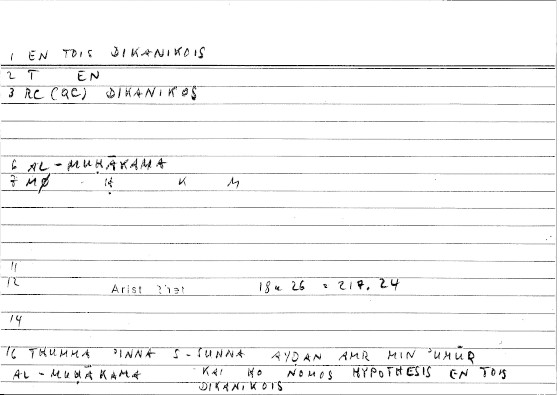 1 EN TOIS DIKANIKOIS
2 T EN
3 RC (QC) DIKANIKOS
6 AL-MUḤĀKAMA
7 MØ Ḥ K M
11
12 Arist Rhet 18a 26 = 217, 24
14
16 THUMMA 'INNA S-SUNNA AYḌAN AMR MIN 'UMŪR
AL-MUḤĀKAMA KAI HO NOMOS HYPOTHESIS EN TOIS
DIKANIKOIS